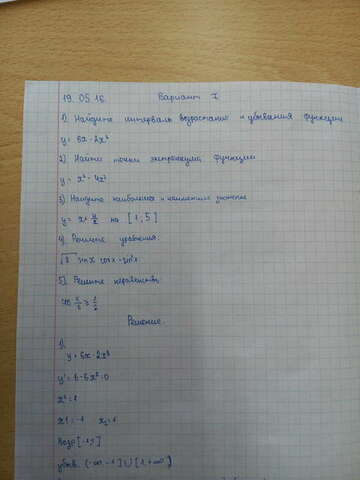 19.05.16. Вариант I
1) Найдите интервалы возрастания и убывания функции
y = 6x - 2x³
2) Найти точки экстремума функции
3) Найдите наибольшее и наименьшее
y = x + 4/x на [1; 5]
4) Решите уравнения:
√3 sinx cosx = sin²x
5) Решите неравенство:
Решение.
1).
y = 6x - 2x³
y' = 6 - 6x² = 0
x² = 1
x1 = -1 x₂ = 1
[-1; 1]
убыв. (-∞ -1] ∪ [1, +∞)